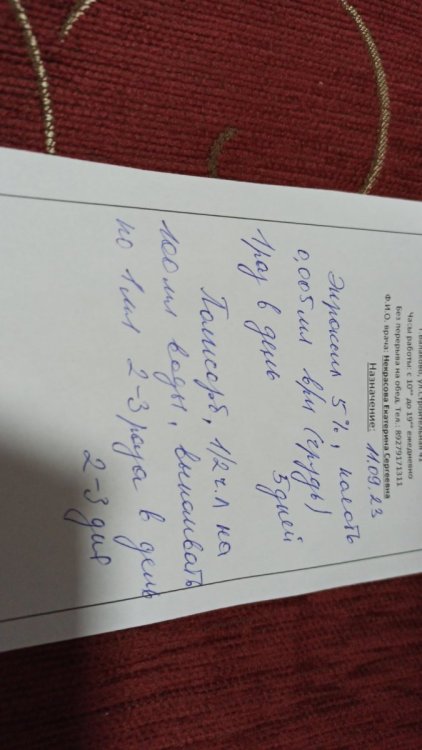 Часы работы: с 10⁰⁰ до 19⁰⁰ ежедневно
Без перерыва на обед. Тел.: 89279171311
Ф.И.О. врача: Некрасова Екатерина Сергеевна
Назначение: 11.09.23
5%, колоть
0,005 мл в/м (грудь)
1 раз в день 5 дней
Полисорб, 1/2 ч.л на
100 мл воды, выпаивать
по 1 мл 2-3 раза в день
2-3 дня